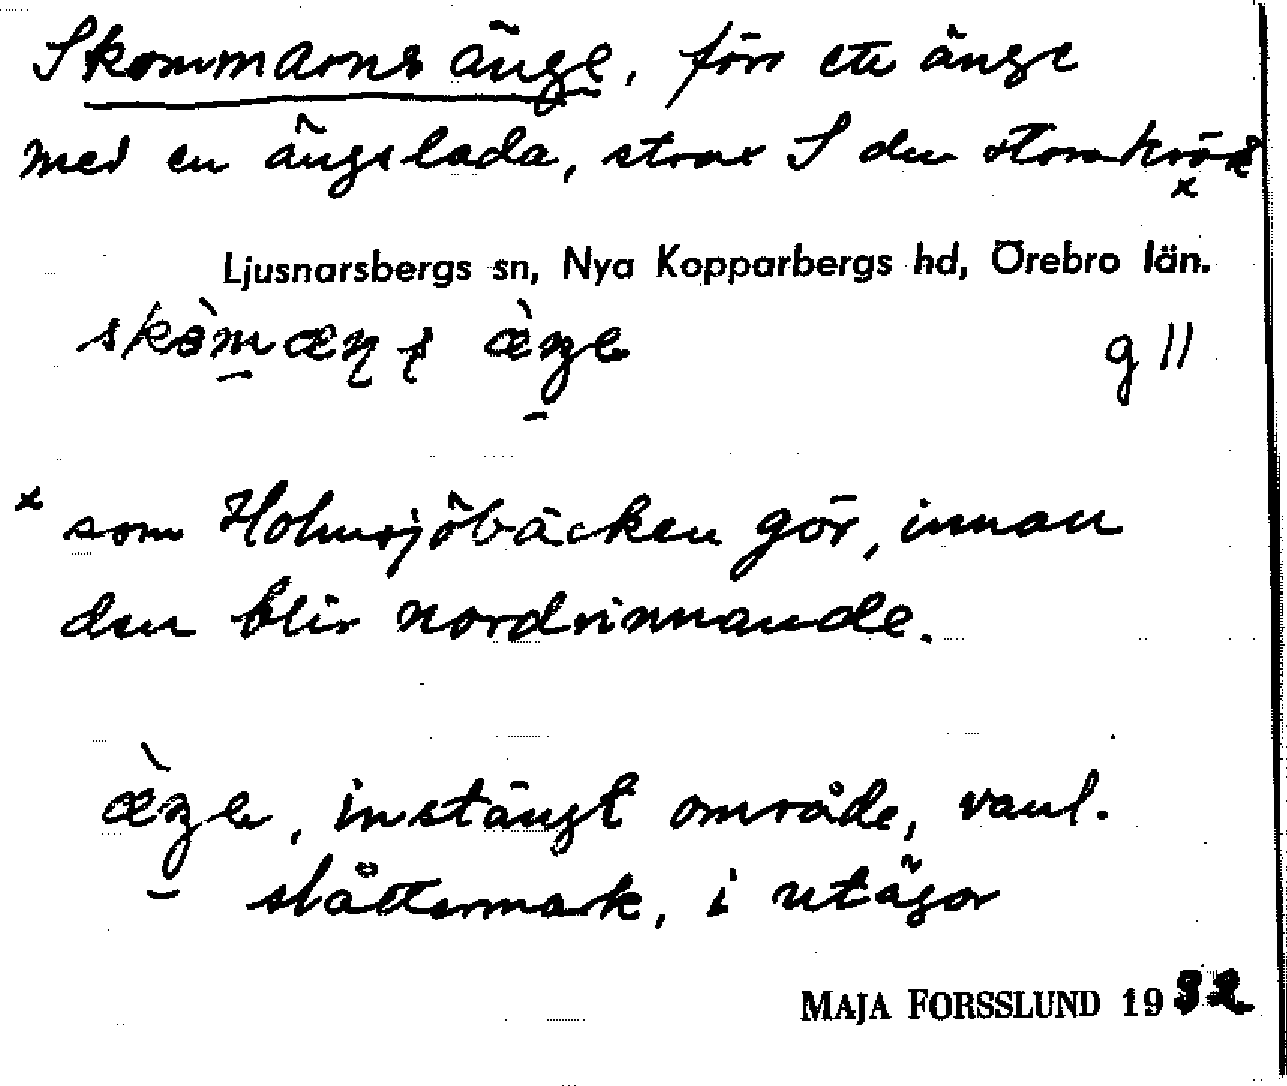 Skommarns änge, förr ett änge
med en ängslada, strax S den stora krök
x
Ljusnarsbergs sn, Nya Kopparbergs hd, Örebro län.
g 11
x som Holmsjöbäcken gör, innan
den blir nordrinnande.
instängt område, vanl.
slåttermark, i utägor
MAJA FORSSLUND 1932